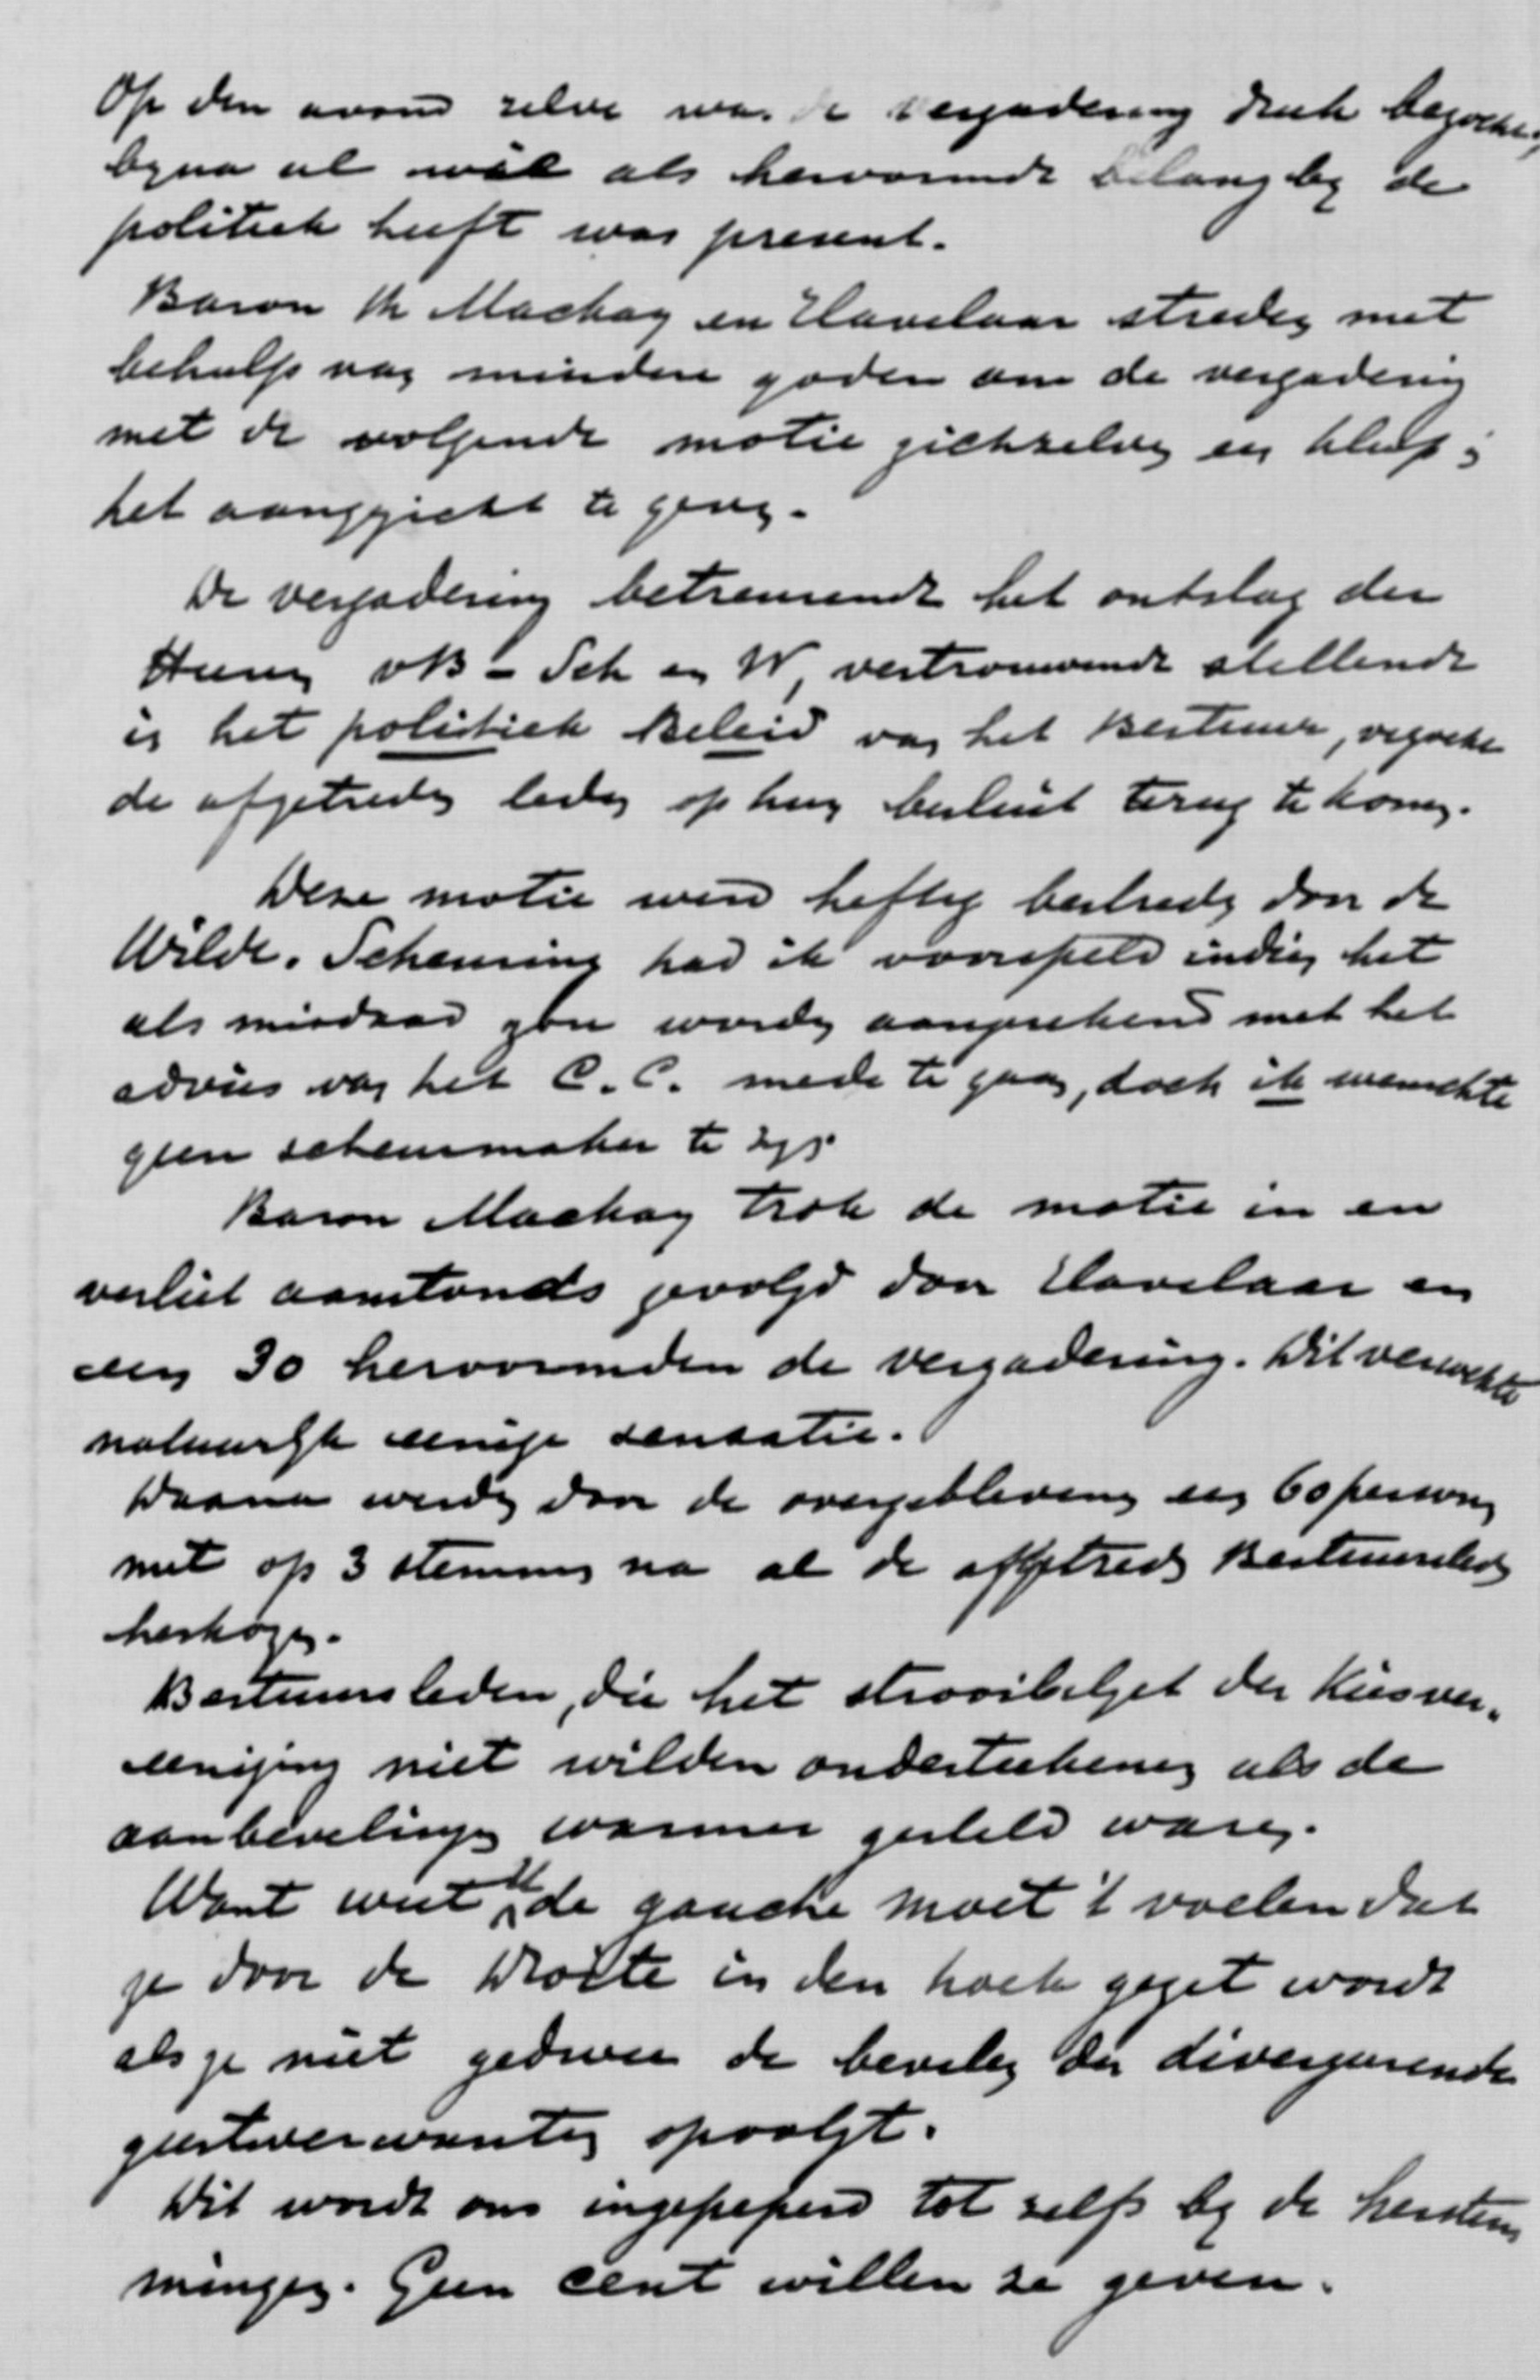 Op den avond zelve was de vergadering druk bezocht,
byna al wat als hervormde belang by de
politiek heeft was present.
Baron Th Mackay en Havelaar streden met
behulp van mindere goden om de vergadering
met de volgende motie zichzelven een klap in
het aangezicht te geven.
De vergadering betreurende het ontslag der
Heeren vB - Sch en W, vertrouwende stellende
in het politiek Beleid van het Bestuur, verzoekt
de afgetreden leden op hun besluit terug te komen.
Deze motie werd heftig bestreden door de
Wilde. Scheuring had ik voorspeld indien het
als misdaad zou worden aangerekend met het
advies van het C.C. mede te gaan, doch ik wenschte
geen scheurmaker te zyn.
Baron Mackay trok de motie in en
verliet aanstonds gevolgd door Havelaar en
een 30 hervormden de vergadering. Dit verwekte
natuurlyk eenige sensatie.
Daarna werden door de overgebleven een 60 personen
met op 3 stemmen na al de afgetreden Bestuursleden
herkozen.
Bestuursleden, die het strooibiljet der Kiesver-
eeniging niet wilden onderteekenen als de
aanbevelingen warmer gesteld waren.
Want weet U, de gauche moet 't voelen dat
ze door de Droite in den hoek gezet wordt
als ze niet gedwee de bevelen der divergeerende
geestverwanten opvolgt.
Dit wordt ons ingepeperd tot zelfs by de herstem-
mingen. Geen cent willen ze geven.